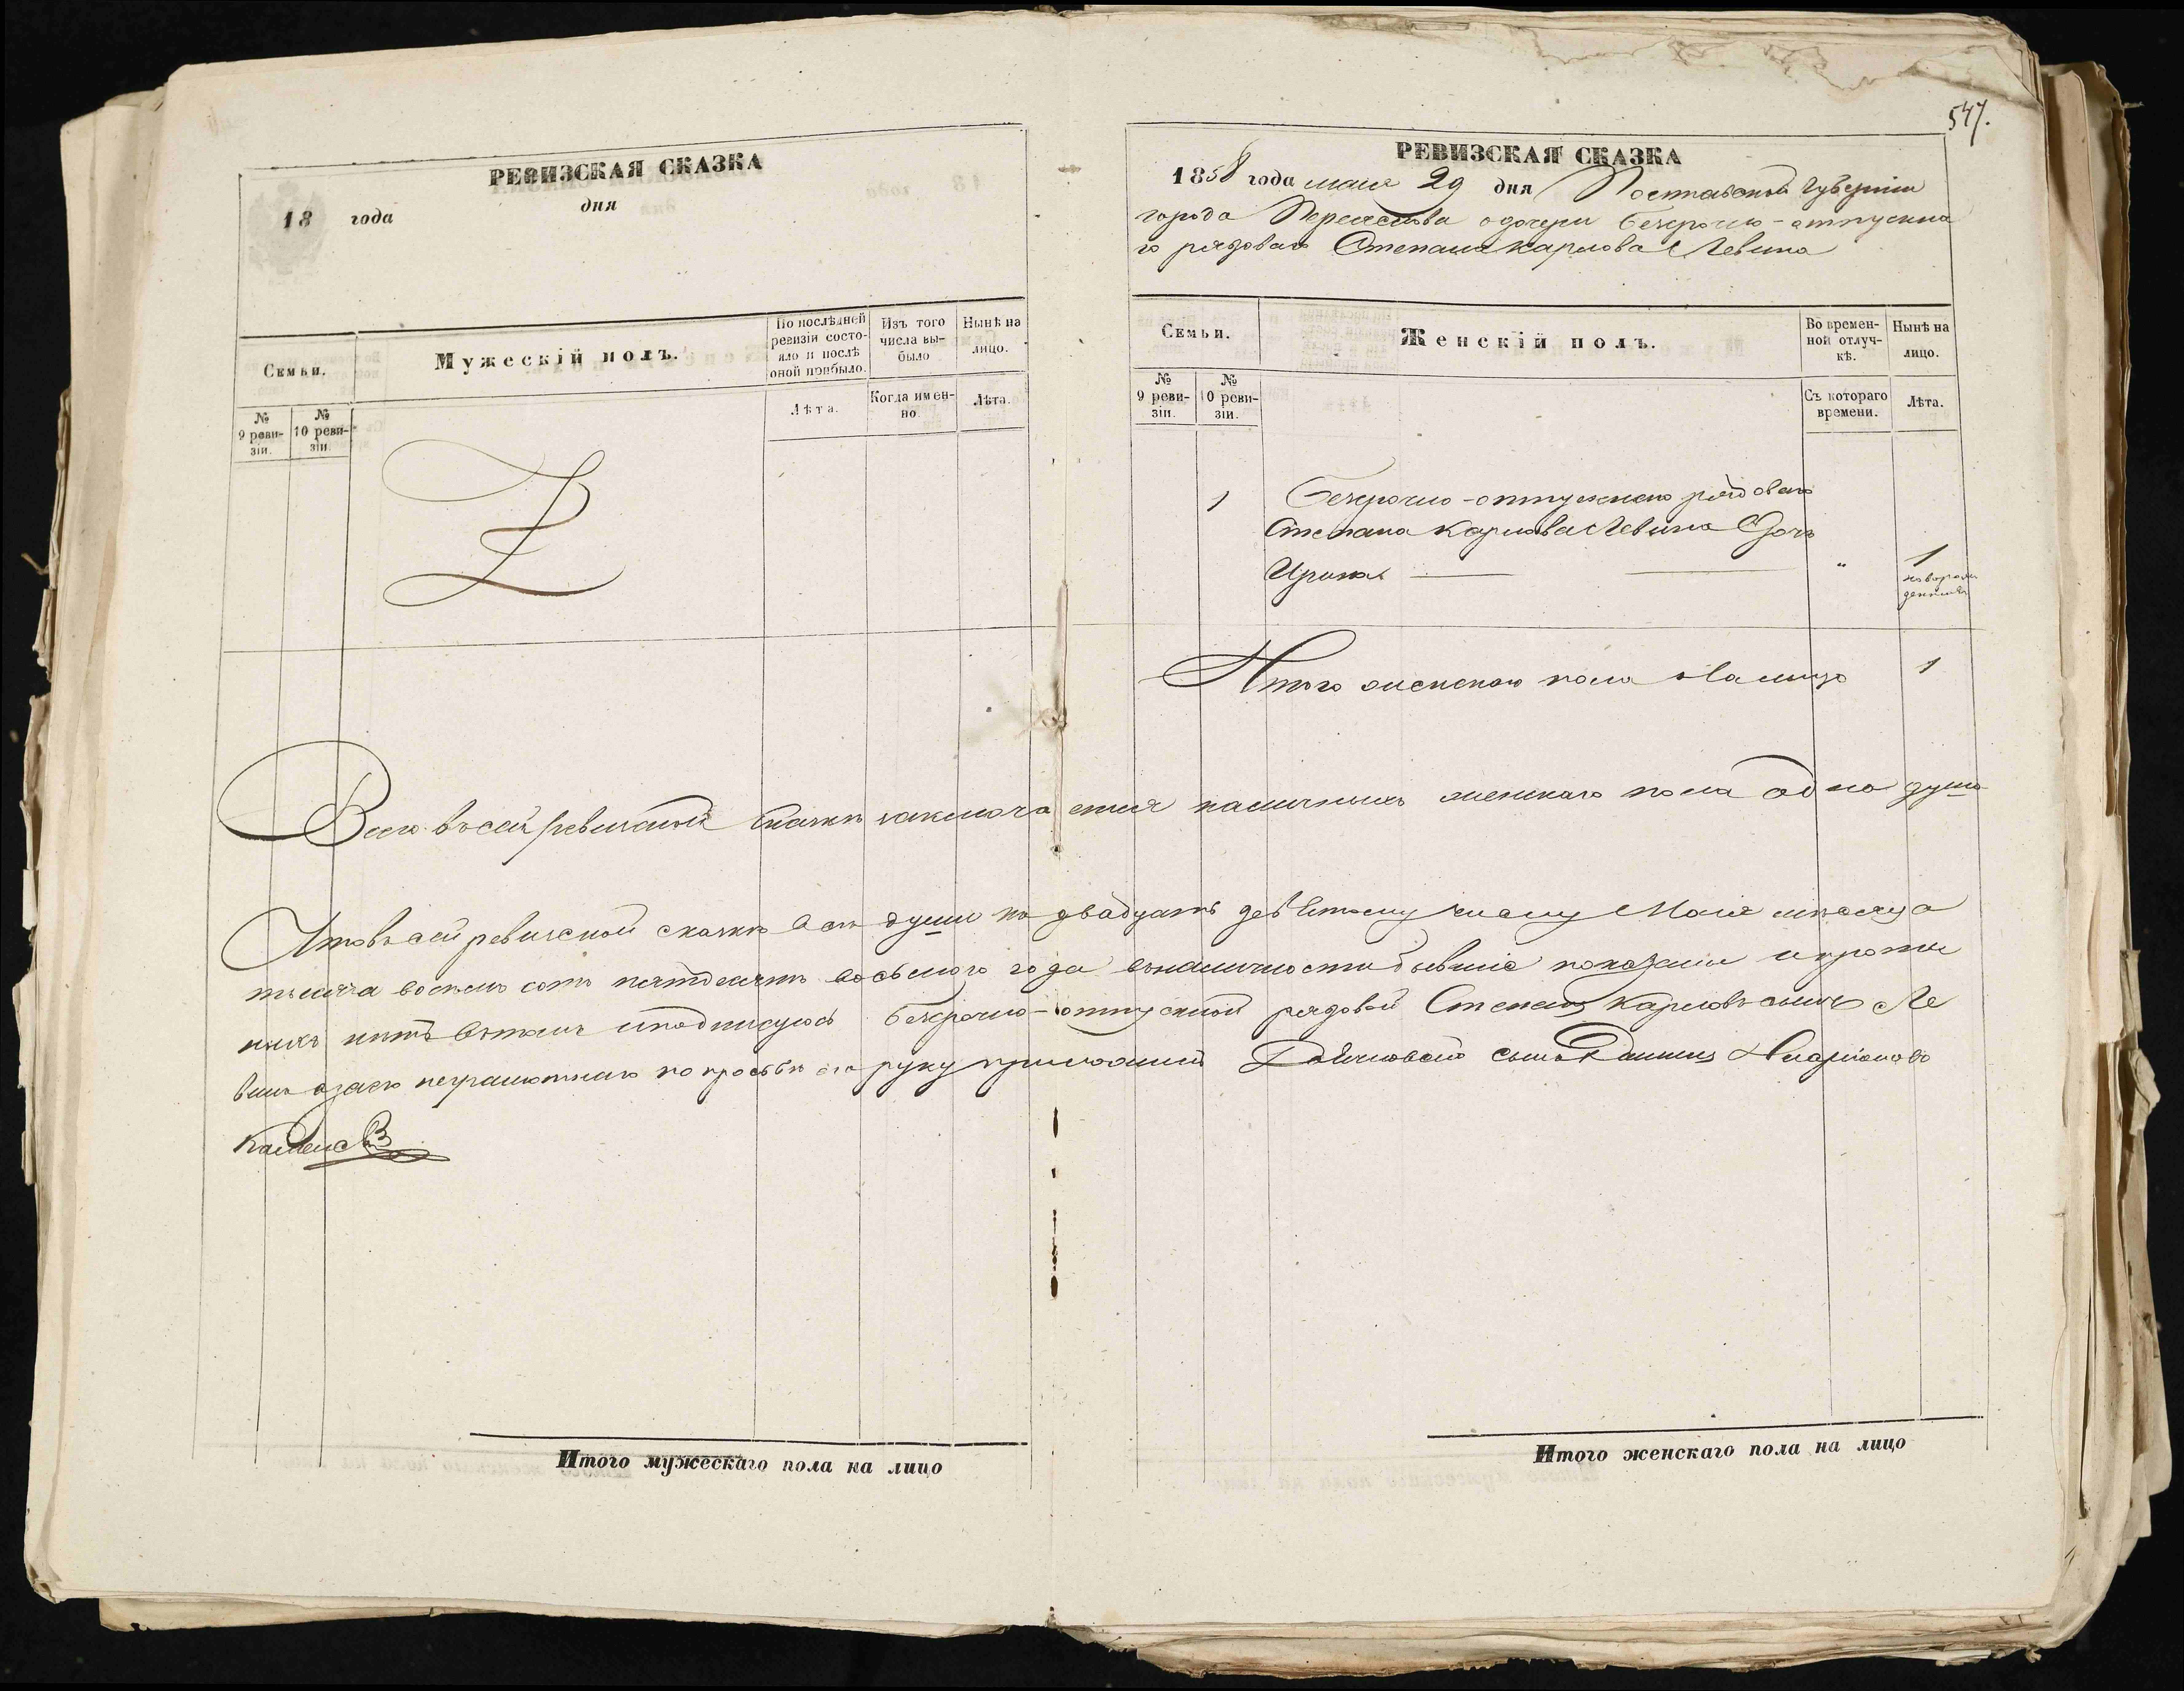 547.
РЕВИЗСКАЯ СКАЗКА
18 года дня
Семьи.
Мужескій полъ.
По послѣдней ревизіи состояло и послѣ оной прибыло.
Изъ того числа выбыло
Нынѣ на лицо.
№ 9 ревизіи.
№ 10 ревизіи.
Лѣта.
Когда именно.
Лѣта.
РЕВИЗСКАЯ СКАЗКА
1858 года мая 29 дня Полтавской Губерніи
города Переяслова о дочери безсрочно-отпускна
го рядоваго Степана Карпова Левина
Семьи.
Женскій полъ.
Во временной отлучкѣ.
Нынѣ на лицо.
№ 9 ревизіи.
№ 10 ревизіи.
Съ котораго времени.
Лѣта.
1 Безсрочно-отпускнаго рядоваго
Степана Карпова Левина Дочь
Ирина " 1
новорожденная
Итого женскаго пола на лицо 1
Всего въ сей ревизской сказкѣ заключается наличныхъ женскаго пола одна душа
Что въ сей ревизской сказкѣ всѣ души по двадцать девятому числу Мая мѣсяца
тысяча восемь сотъ пятдесятъ восьмого года въ наличности бывшіе показаны и кромѣ
нихъ нѣтъ въ томъ и подписуюсь безсрочно-отпускной рядовой Степанъ Карповъ сынъ Ле
винъ а за его неграмотнаго по просьбѣ его руку приложилъ сынъ Даниилъ Иларіоновъ
Итого мужескаго пола на лицо
Итого женскаго пола на лицо